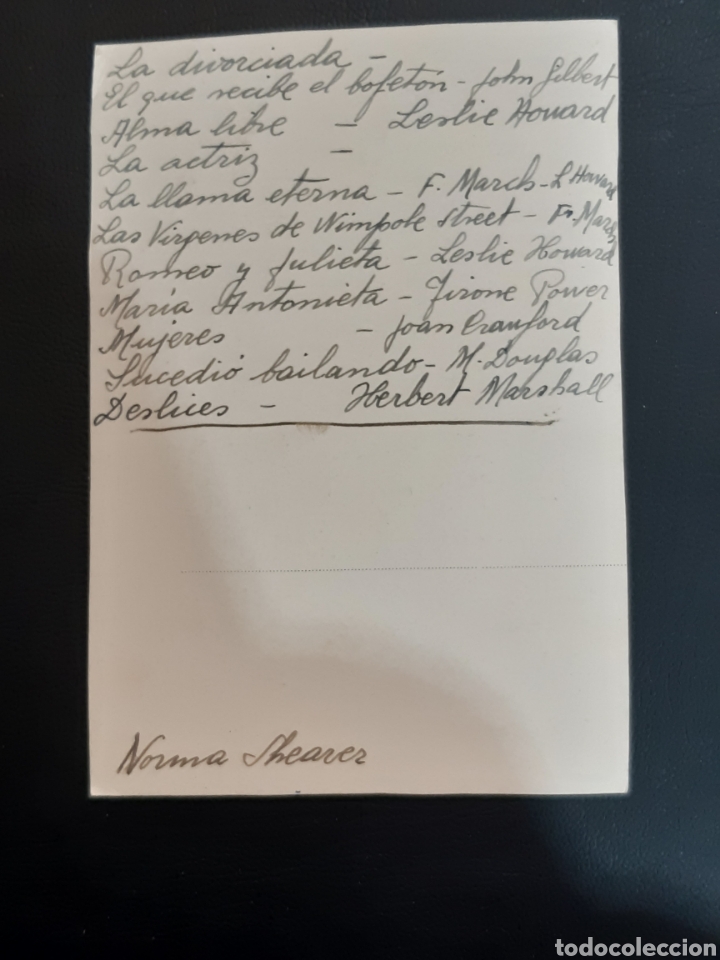 La divorciada -
El que recibe el bofetón - John Gilbert
Alma libre - Leslie Howard
La actriz -
La llama eterna - F. March - L Howard
Las Virgenes de Wimpole Street - Fr. March
Romeo y Julieta - Leslie Howard
María Antonieta - Tirone Power
Mujeres - Joan Crawford
Sucedió bailando - M. Douglas
Deslices - Herbert Marshall
Norma Shearer
todocoleccion